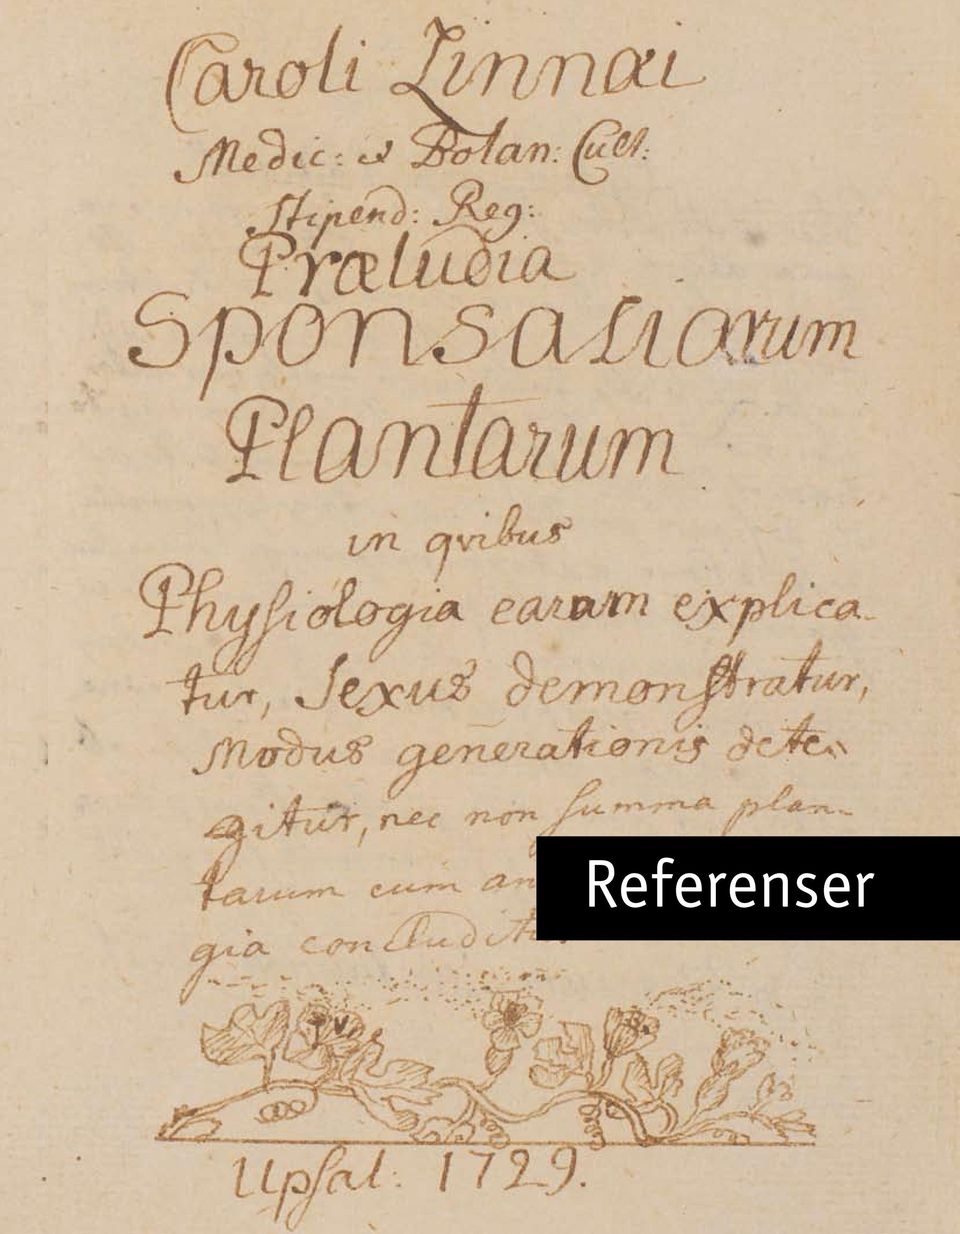 Caroli Linnæi
Medic: et Botan: Cult:
Stipend: Reg:
Præludia
Sponsaliorum
Plantarum
in qvibus
Physiologia earum explica-
tur, Sexus demonstratur,
Modus generationis dete-
gitur, nec non summa plan-
tarum cum an
gia concluditur
Referenser
Upsal: 1729.